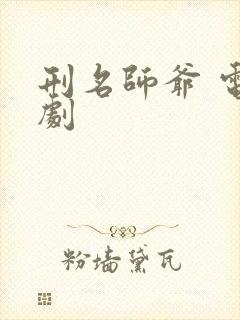 刑名師爺 電
劇
粉墙黛瓦